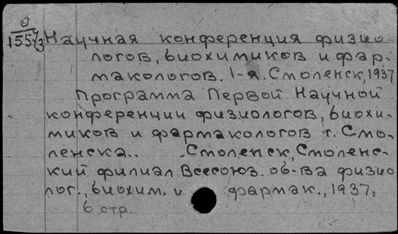 0
1557/3
Научная конференция физио-
логов, биохимиков и фар-
макологов. 1-я. Смоленск, 1937
Программа Первой Научной
конференции физиологов, биохи-
миков и фармакологов г. Смо-
ленска.. Смоленск, Смоленс-
кий филиал Всесоюз. об-ва физио-
лог., биохим. и фармак., 1937,
6 стр.